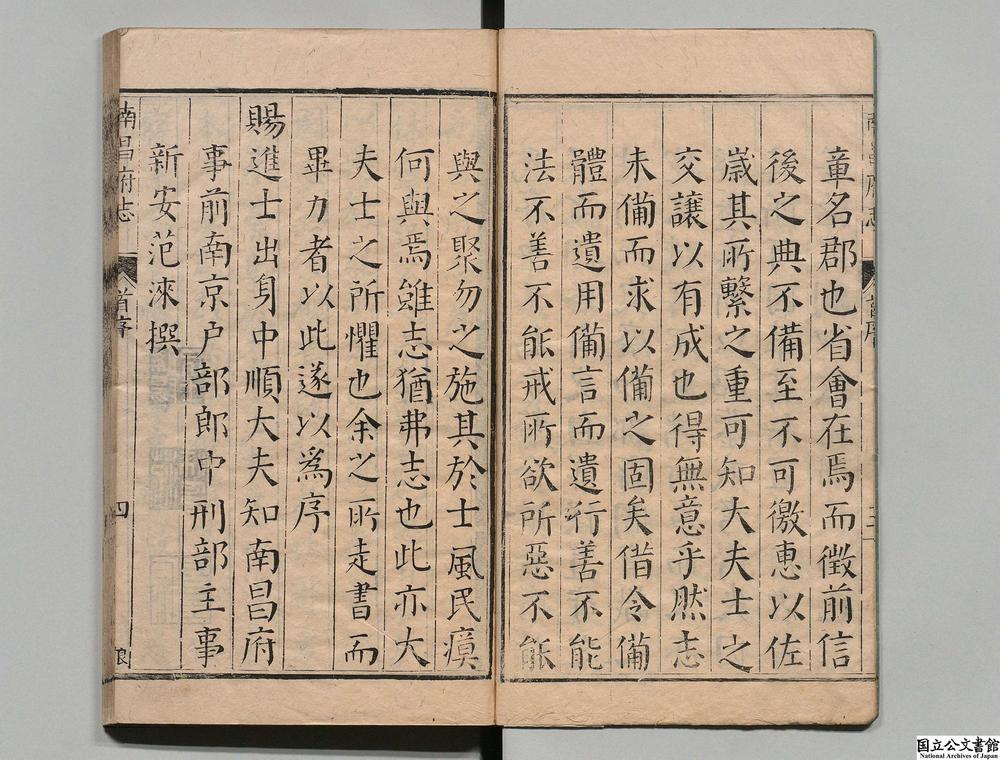 章名郡也省會在焉而徵前信
後之典不備至不可徼惠以佐
歳其所繫之重可知大夫士之
交讓以有成也得無意乎然志
未備而求以備之固矣借令備
體而遺用備言而遺行善不能
法不善不能戒所欲所惡不能
與之聚勿之施其於士風民瘼
何與焉雖志猶弗志也此亦大
夫士之所懼也余之所走書而
畢力者以此遂以爲序
賜進士出身中順大夫知南昌府
事前南京户部郎中刑部主事
新安范淶撰
南昌府志
首序
四
国立公文書館
National Archives of Japan